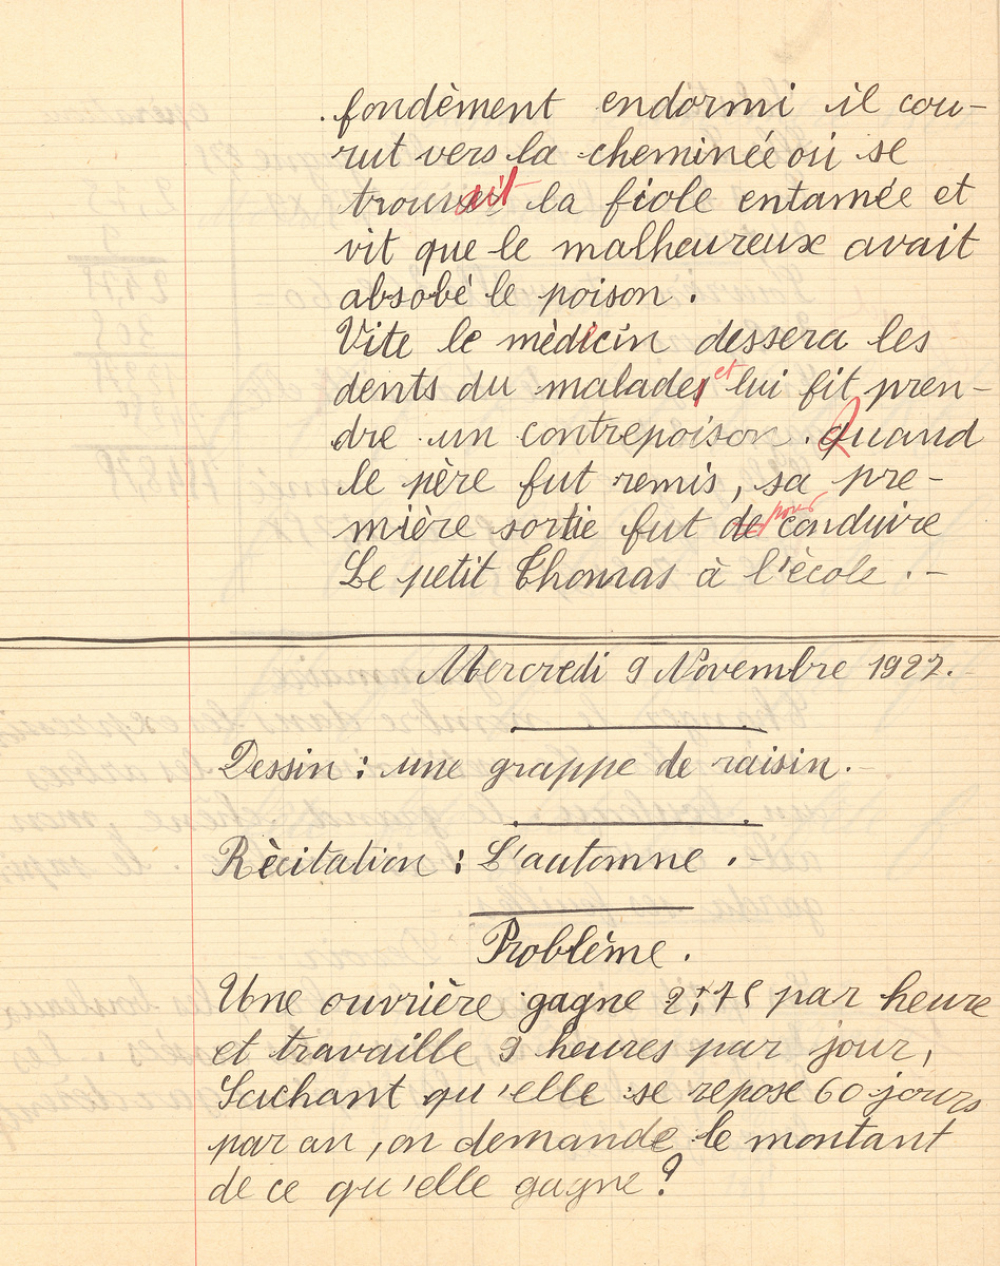 fondèment endormi il cou-
rut vers la cheminée où se
trouvait la fiole entamée et
vit que le malheureux avait
absobé le poison.
Vite le mèdecin dessera les
dents du malade et lui fit pren-
dre un contrepoison. Quand
le père fut remis, sa pre-
mière sortie fut de pour conduire
Le petit Thomas à l'école.-
Mercredi 9 Novembre 1927.
Dessin : une grappe de raisin.-
Rècitation : L'automne.-
Problème.
Une ouvrière gagne 2,75 par heure
et travaille 9 heures par jour,
Sachant qu'elle se repose 60 jours
par an, on demande le montant
de ce qu'elle gagne ?